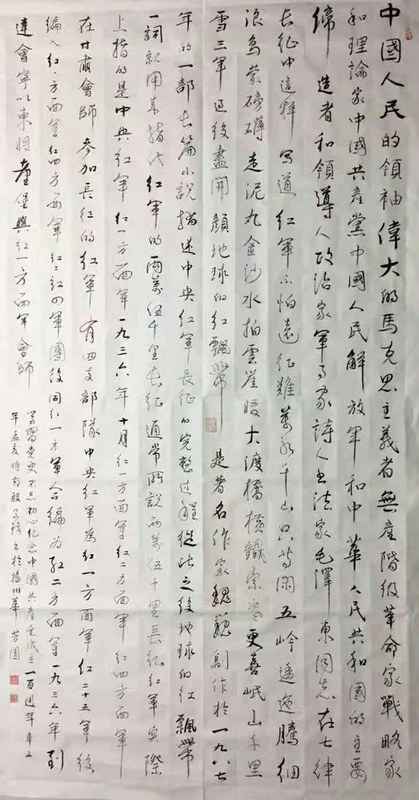 中國人民的領袖偉大的馬克思主義者無產階級革命家戰略家
和理論家中國共產黨中國人民解放軍和中華人民共和國的主要
締造者和領導人政治家軍事家詩人書法家毛澤東同志在七律
長征中這樣寫道紅軍不怕遠征難萬水千山只等閑五岭逶迤騰細
浪烏蒙磅礴走泥丸金沙水拍雲崖暖大渡橋橫鐵索寒更喜岷山千里
雪三軍過後盡開顏地球的紅飄帶是著名作家魏巍創作於一九八七
年的一部長篇小說描述中央紅軍長征的完整過程從此之後地球的紅飄帶
一詞就用來指代紅軍的兩萬伍千里長征通常所說的兩萬伍千里長征紅軍實際
上指的是中央紅軍紅一方面軍一九三六年十月紅一方面軍紅二方面軍紅四方面軍
在甘肅會師參加長征的紅軍有四支部隊中央紅軍為紅一方面軍紅二十五軍後
編入紅一方面軍紅四方面軍紅二紅六軍團後同紅一方軍合編為紅二方面軍一九三六年到
達會寧以東將臺堡與紅一方面軍會師
不忘初心紀念中國共產黨成立一百週年辛丑
年孟夏時節